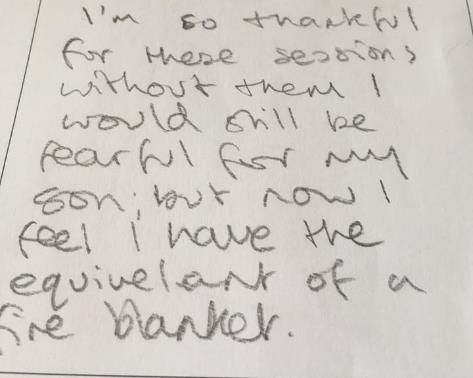 I'm so thankful
for these sessions
without them I
would still be
fearful for my
son; but now I
feel I have the
equivelant of a
fire blanket.